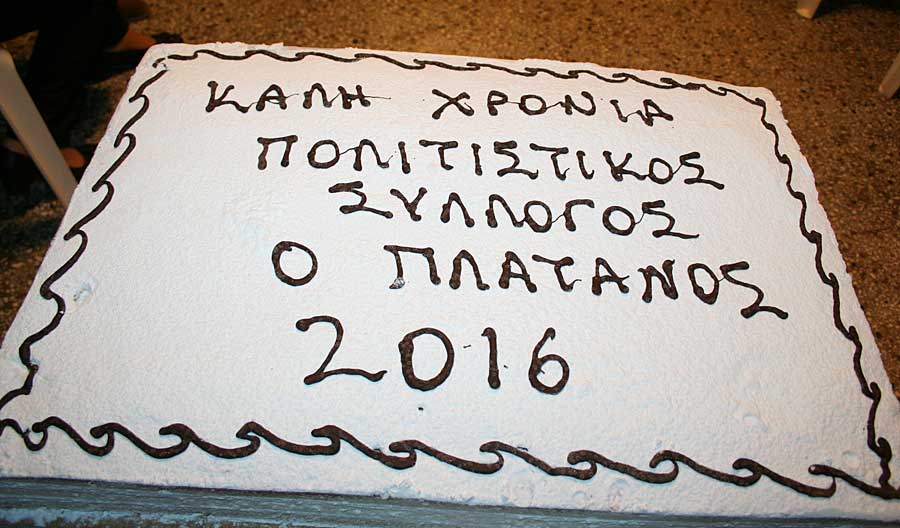 ΚΑΛΗ ΧΡΟΝΙΑ
ΠΟΛΙΤΙΣΤΙΚΟΣ
ΣΥΛΛΟΓΟΣ
Ο ΠΛΑΤΑΝΟΣ
2016